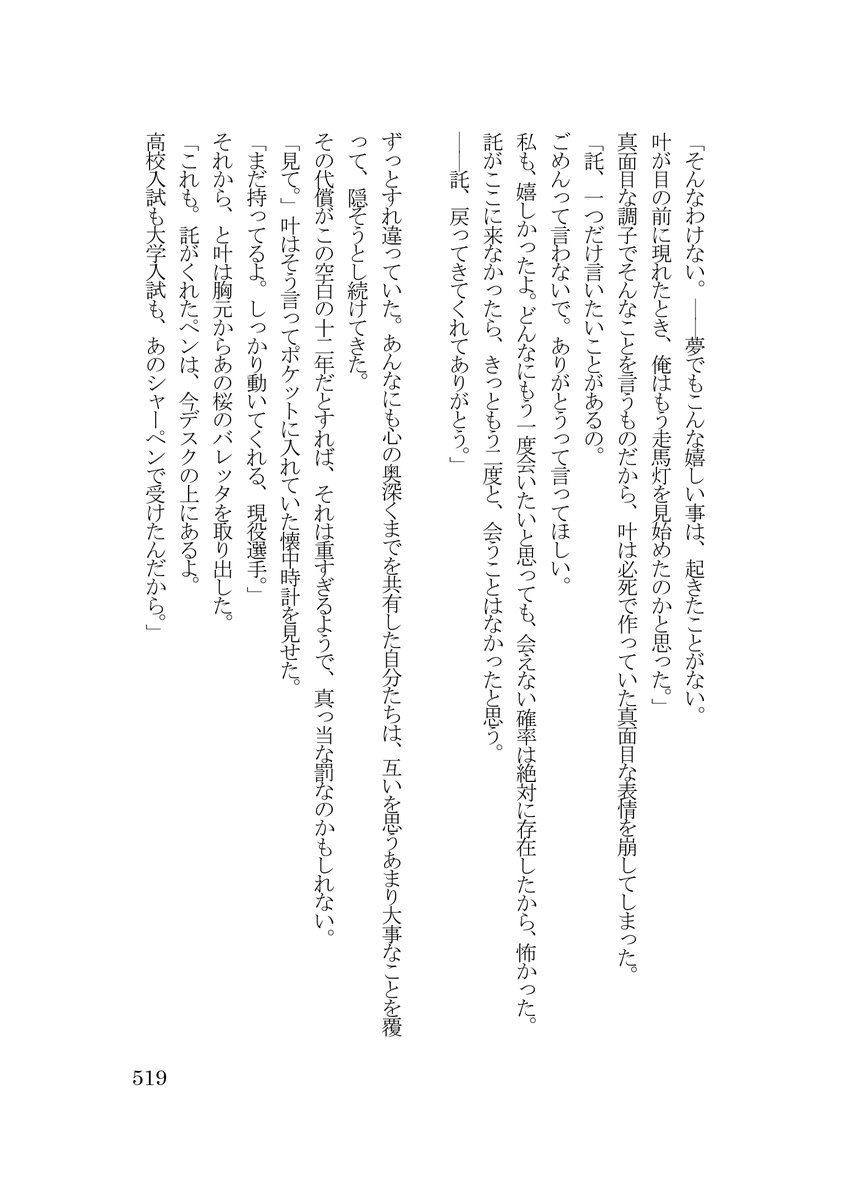 「そんなわけない。――夢でもこんな嬉しい事は、起きたことがない。
叶が目の前に現れたとき、俺はもう走馬灯を見始めたのかと思った。」
真面目な調子でそんなことを言うものだから、叶は必死で作っていた真面目な表情を崩してしまった。
「託、一つだけ言いたいことがあるの。
ごめんって言わないで。ありがとうって言ってほしい。
私も、嬉しかったよ。どんなにもう一度会いたいと思っても、会えない確率は絶対に存在したから、怖かった。
託がここに来なかったら、きっともう二度と、会うことはなかったと思う。
――託、戻ってきてくれてありがとう。」
ずっとすれ違っていた。あんなにも心の奥深くまでを共有した自分たちは、互いを思うあまり大事なことを覆
って、隠そうとし続けてきた。
その代償がこの空白の十二年だとすれば、それは重すぎるようで、真っ当な罰なのかもしれない。
「見て。」叶はそう言ってポケットに入れていた懐中時計を見せた。
「まだ持ってるよ。しっかり動いてくれる、現役選手。」
それから、と叶は胸元からあの桜のバレッタを取り出した。
「これも。託がくれたペンは、今デスクの上にあるよ。
高校入試も大学入試も、あのシャーペンで受けたんだから。」
519